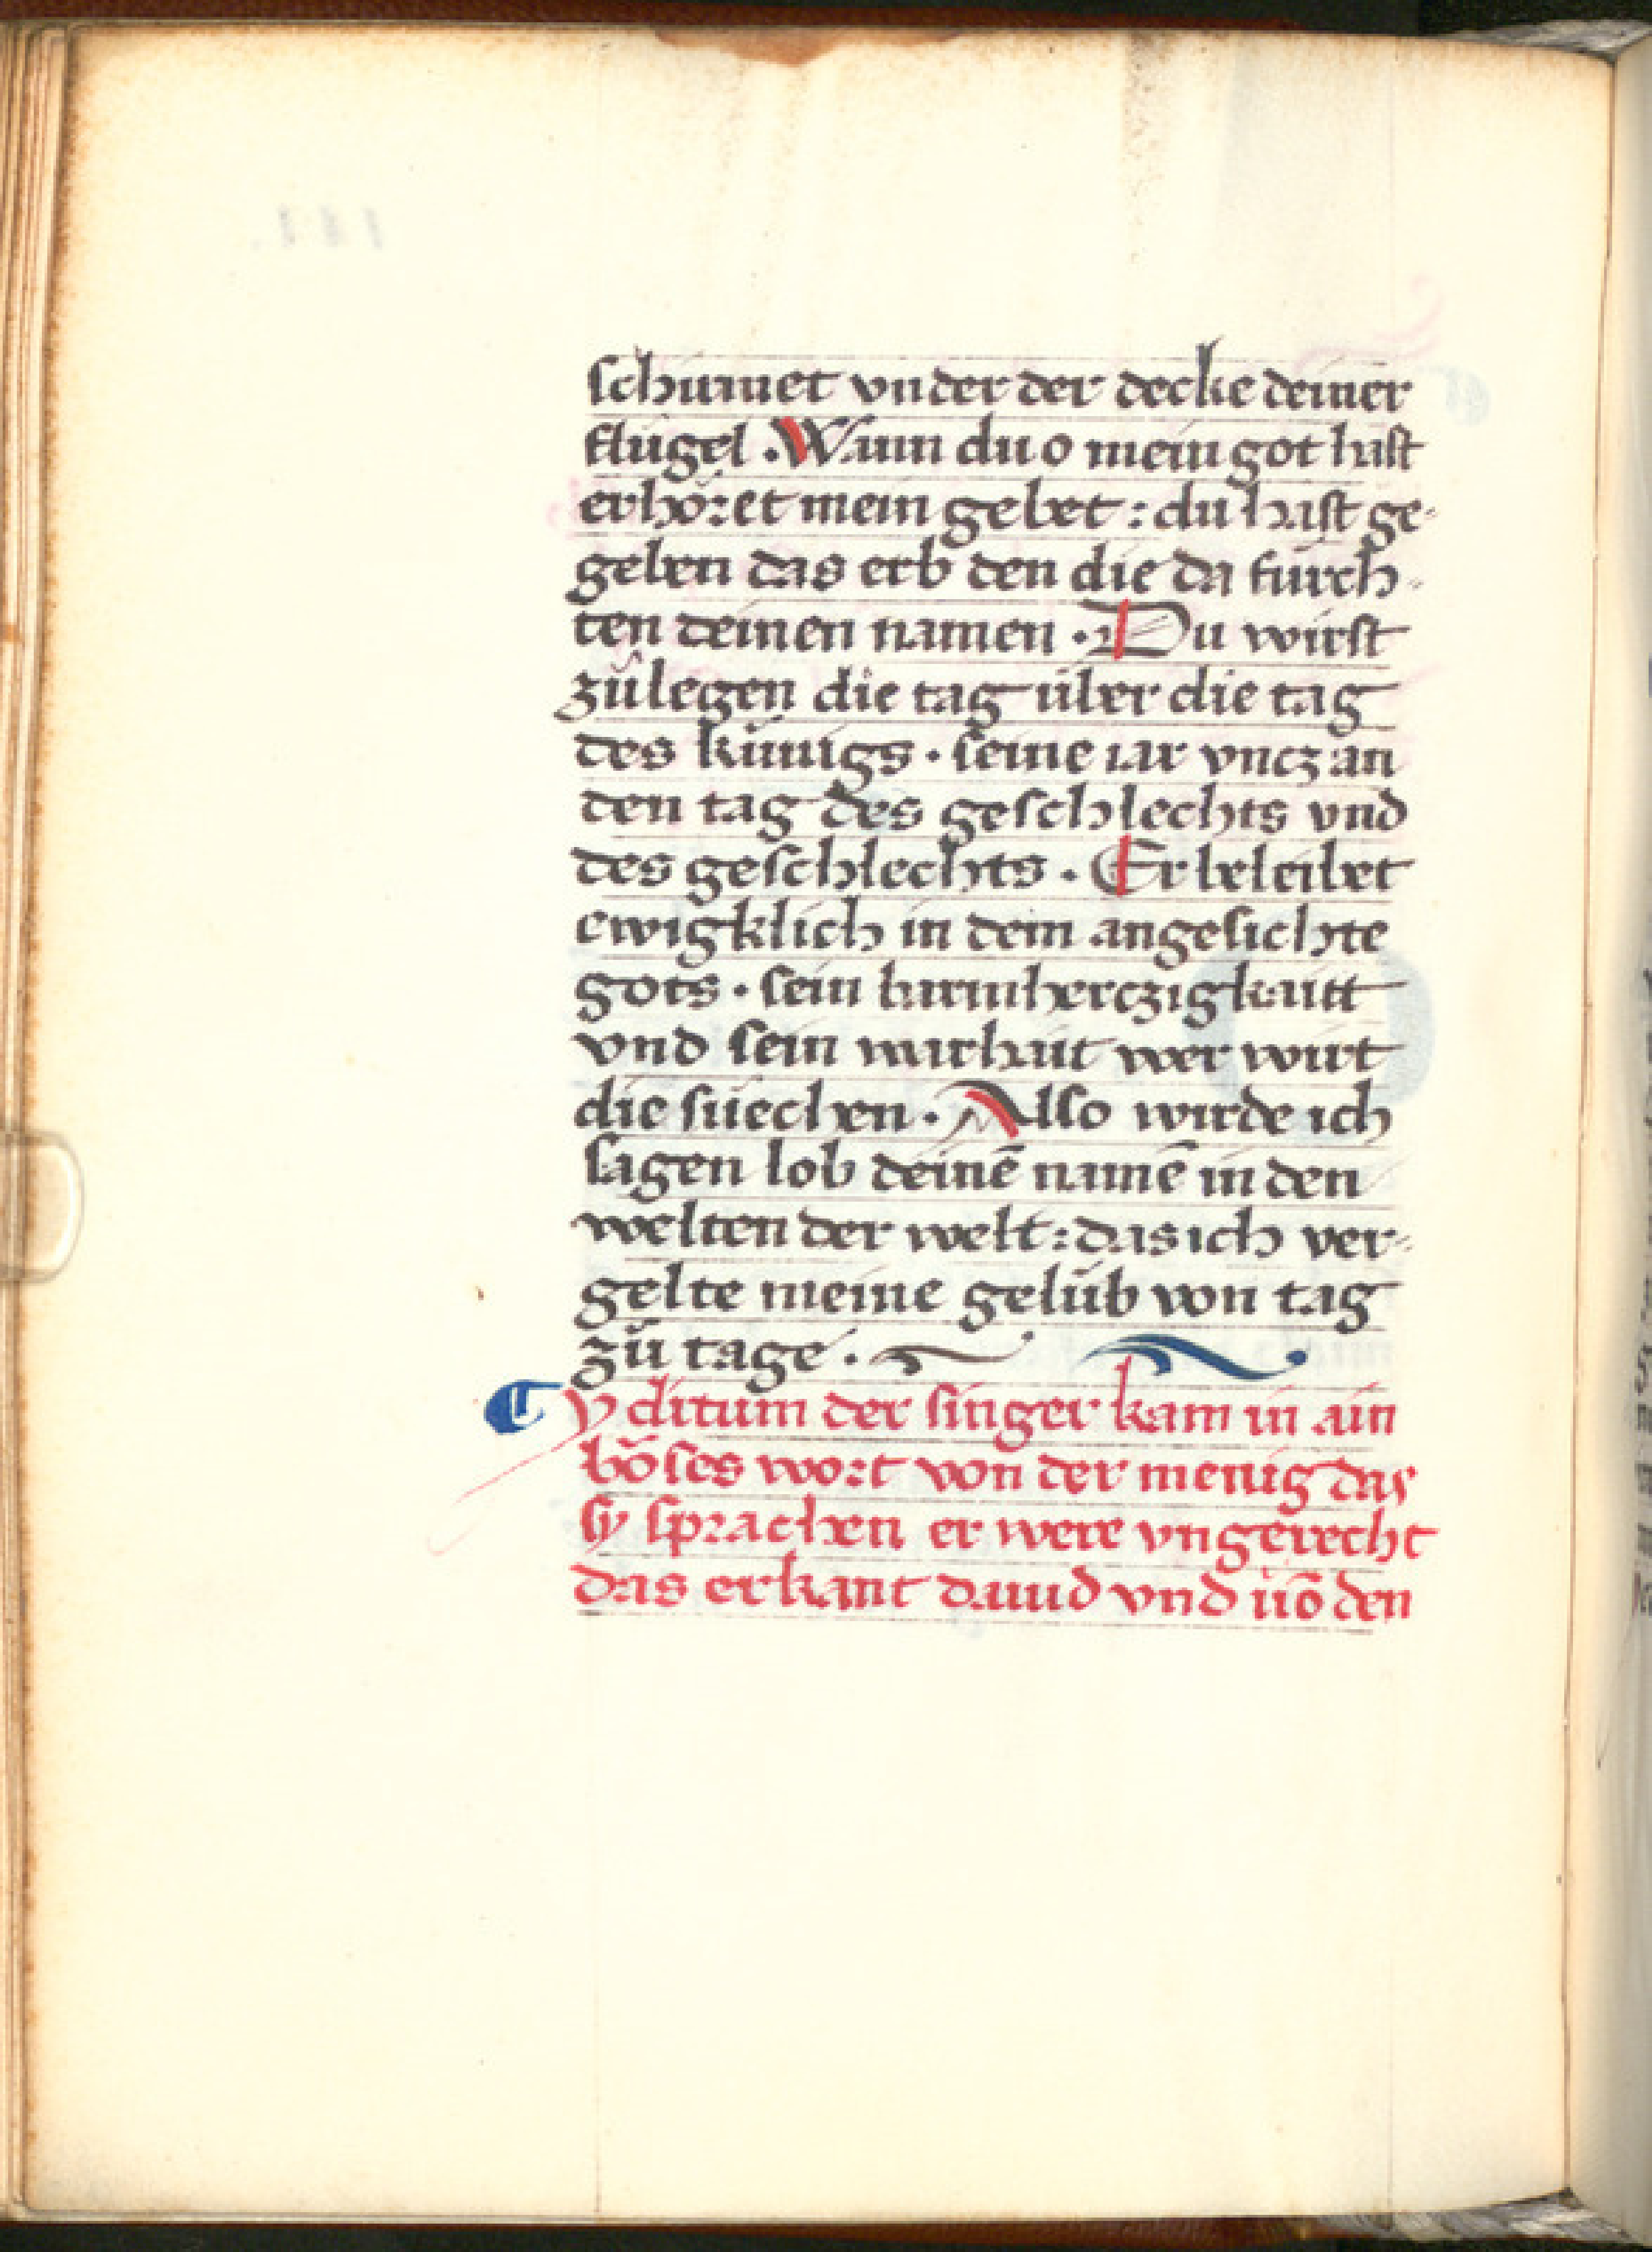 schirmet vnder der decke deiner
flügel · Wann du o mein got hast
erhöret mein gebet : du hast ge-
geben das erb den die da fürch-
ten deinen namen · Du wirst
zůlegen die tag über die tag
des künigs · seine iar vncz an
den tag des geschlechts vnd
des geschlechts · Er beleibet
ewigklich in dem angesichte
gots · sein barmherczigkaitt
vnd sein warhait wer wirt
die süechen · Also wirde ich
sagen lob deinē namē in den
welten der welt : das ich ver-
gelte meine gelüb von tag
zů tage ·
yditum der singer kam in ain
böses wort von der menig das
sy sprachen er were vngerecht
das erkant dauid vnd den